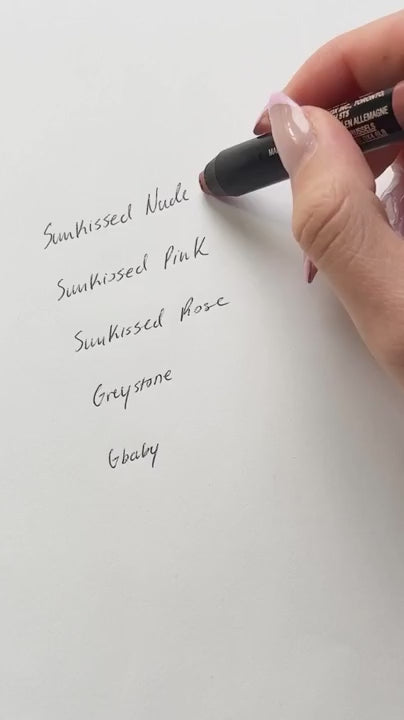 Sunkissed Nude
Sunkissed Pink
Sunkissed Rose
Greystone
Gbaby
EN ALLEMAGNE